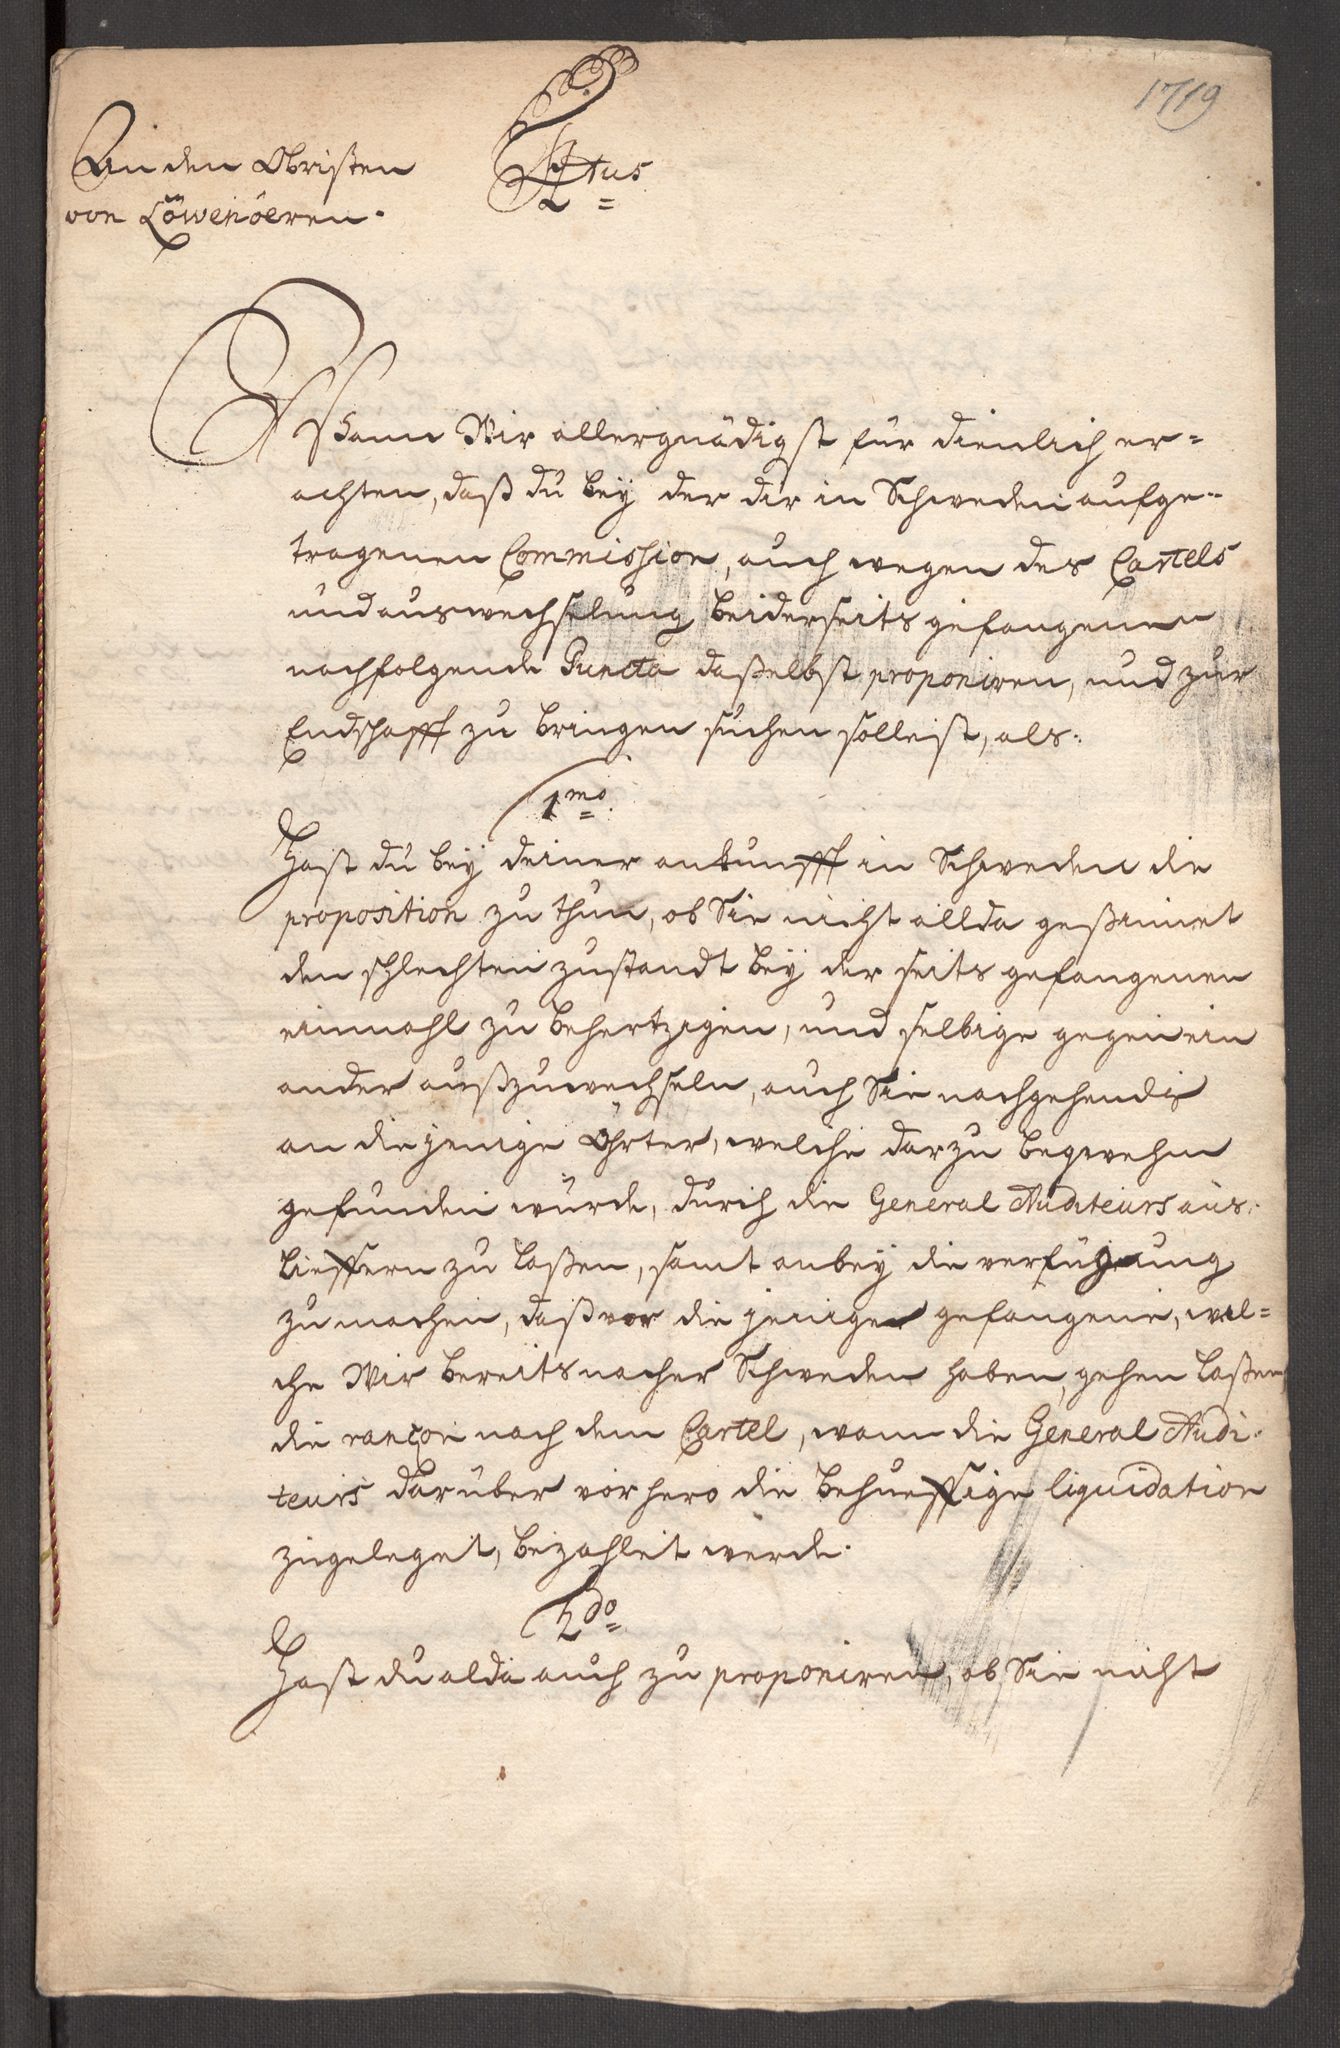 1719
An den Obristen
von Löwenöeren.
Ttus
Wann Wir allergnädigst für dienlich er=
achten, daß du bey der dir in Schweden aufge=
tragenen Commission, auch wegen des Cartels
und auswechselung beiderseits gefangenen
nachfolgende Puncta daselbst proponiren, und zur
Endschafft zu bringen suchen sollest, als.
1mo
Hast du bey deiner ankunfft in Schweden die
proposition zu thun, ob Sie nicht allda gesinnet
den schlechten zustandt beyderseits gefangenen
einmahl zu behertzigen, und selbige gegen ein
ander außzuwechseln, auch Sie nachgehends
an diejenige Öhrter, welche darzu beqwehm
gefunden würde, durch die General Auditeurs aus=
lieffern zu laßen, samt anbey die verfügung
zu machen, daß vor die jenigen gefangene, wel=
che Wir bereits nacher Schweden haben gehen laßen
die rançon nach dem Cartel, wann die General Audi=
teurs darüber vorhero die behueffige liquidation
zugeleget, bezahlet werde.
2do
Hast du alda auch zu proponiren, ob Sie nicht